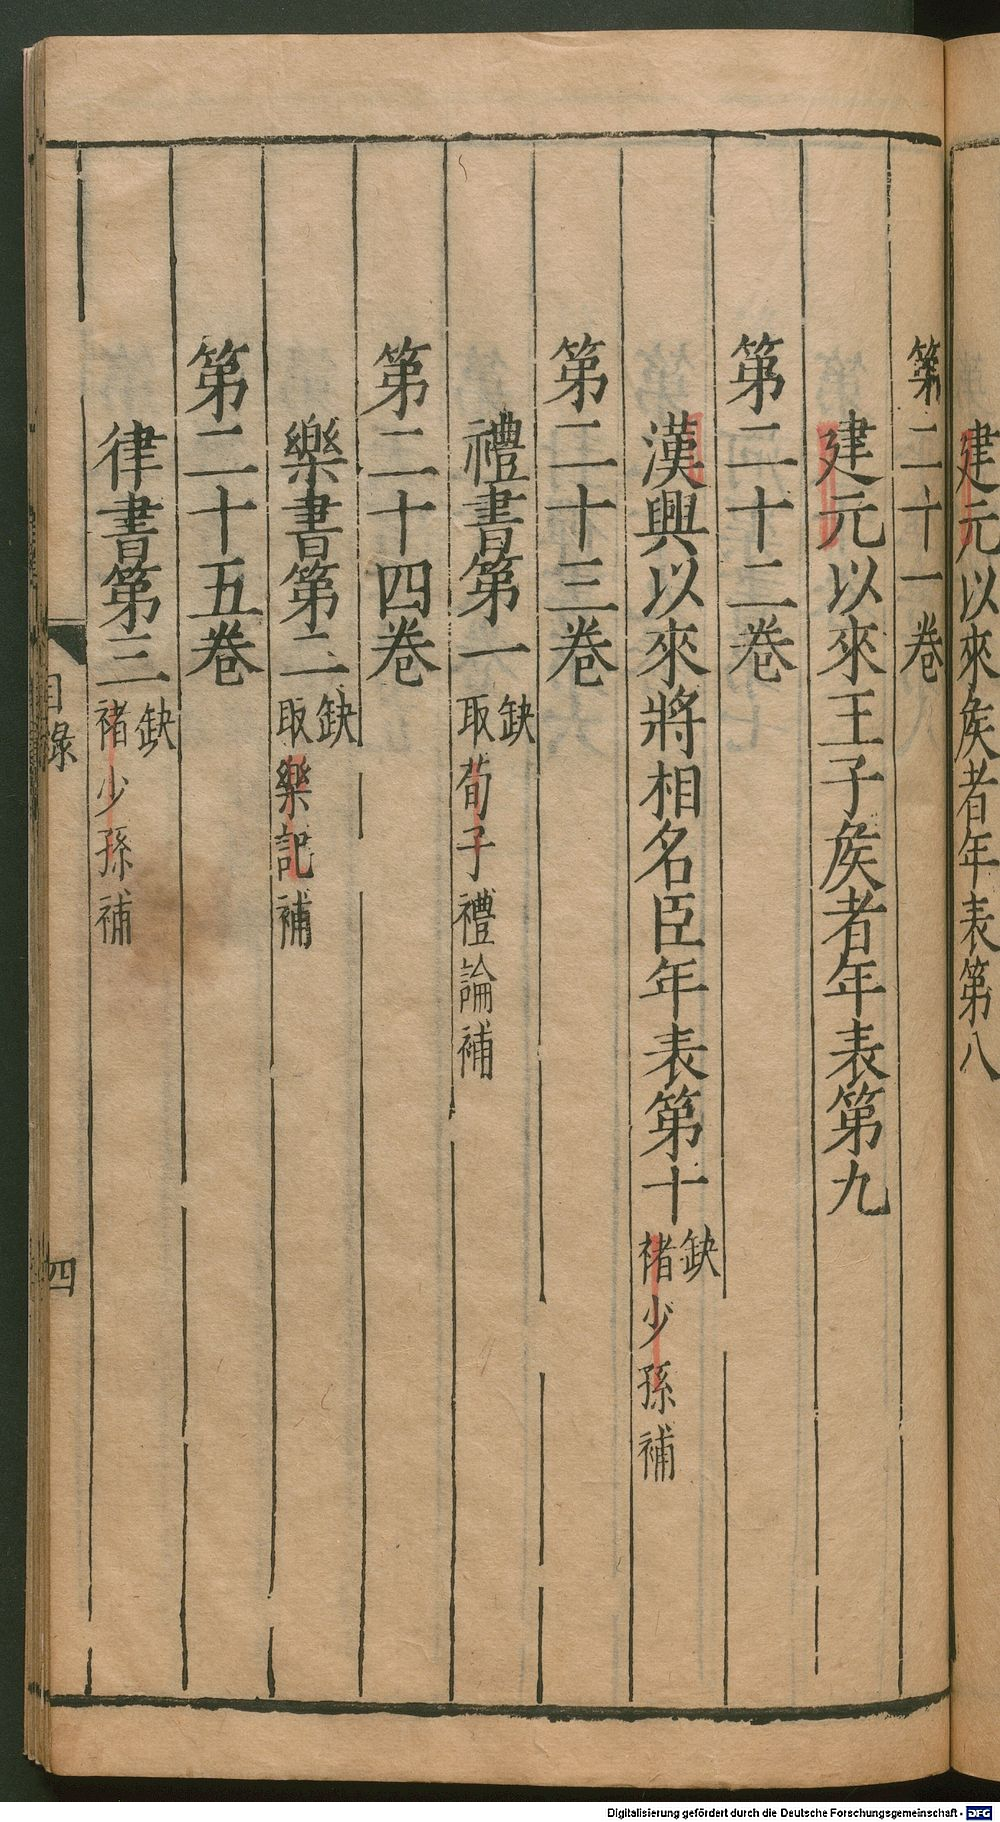 建元以來矦者年表第八
第二十一卷
建元以來王子矦者年表第九
第二十二卷
漢興以來將相名臣年表第十 缺 褚少孫補
第二十三卷
禮書第一 缺 取荀子禮論補
第二十四卷
樂書第二 缺 取樂記補
第二十五卷
律書第三 缺 褚少孫補
目錄 四
Digitalisierung gefördert durch die Deutsche Forschungsgemeinschaft - DFG